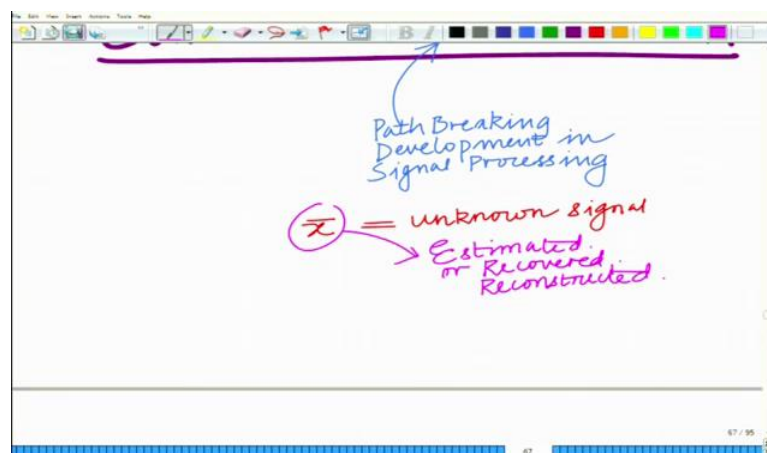 File Edit View Insert Actions Tools Help
B I
Path Breaking
Development in
Signal Processing
x̄ = unknown signal
Estimated.
or Recovered.
Reconstructed.
67 / 95
67